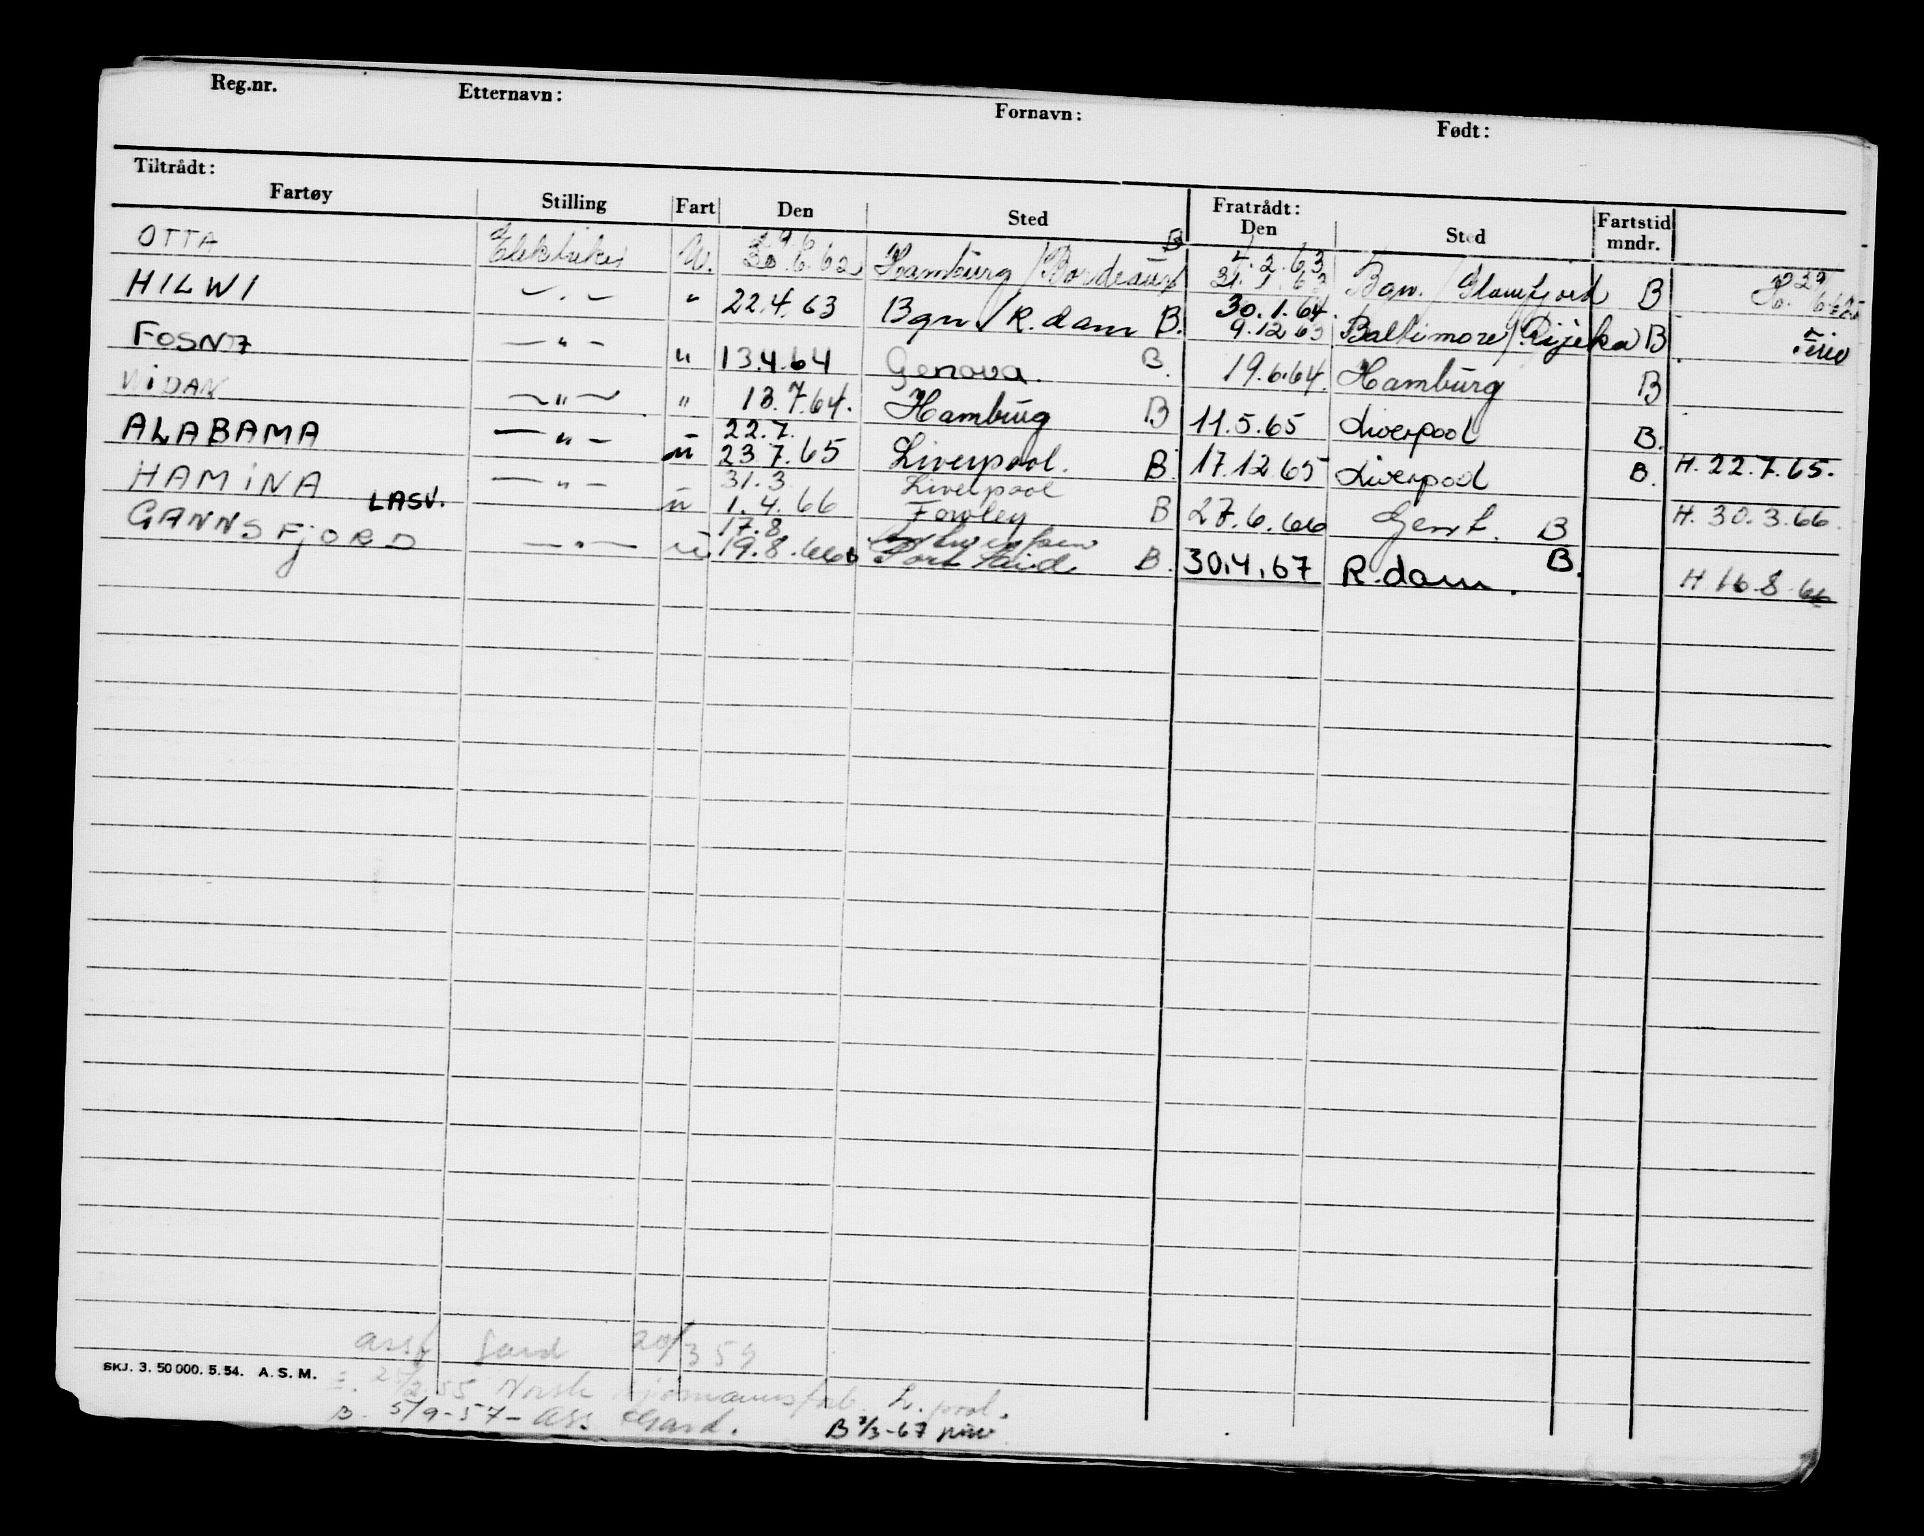 Reg.nr. Etternavn: Fornavn: Født:
Tiltrådt: Fratrådt:
Fartøy Stilling Fart Den Sted Den Sted Fartstid mndr.
OTTA Elektriker U. 30.6.62 Hamburg / Bordeaux B 1.2.63 31.1.63 Bgn. / Glomfjord B
HILWI — " — " 22.4.63 Bgn / R.dam B. 30.1.64 9.12.63 Baltimore / Rijeka B
FOSNA — " — " 13.4.64 Genova. B. 19.6.64. Hamburg B
NIDAN — " — " 13.7.64. Hamburg B 11.5.65 Liverpool B.
ALABAMA — " — u 22.7. 23.7.65 Liverpool. B 17.12.65 Liverpool B. H. 22.7.65.
HAMINA LASV. — " — u 31.3 1.4.66 Liverpool Fowley B 27.6.66 Gent. B H. 30.3.66.
GANNSFJORD — " — u 17.8 19.8.66 Antwerpen Port Said B. 30.4.67 R.dam. B. H 16.8.66
SKJ. 3. 50 000. 5. 54. A. S. M.
ass Gard 20/3 59
2/2 55 Norsk sjømannsforb. L.pool.
B. 5/9-57 - ass Gard. B 7/3-67 priv